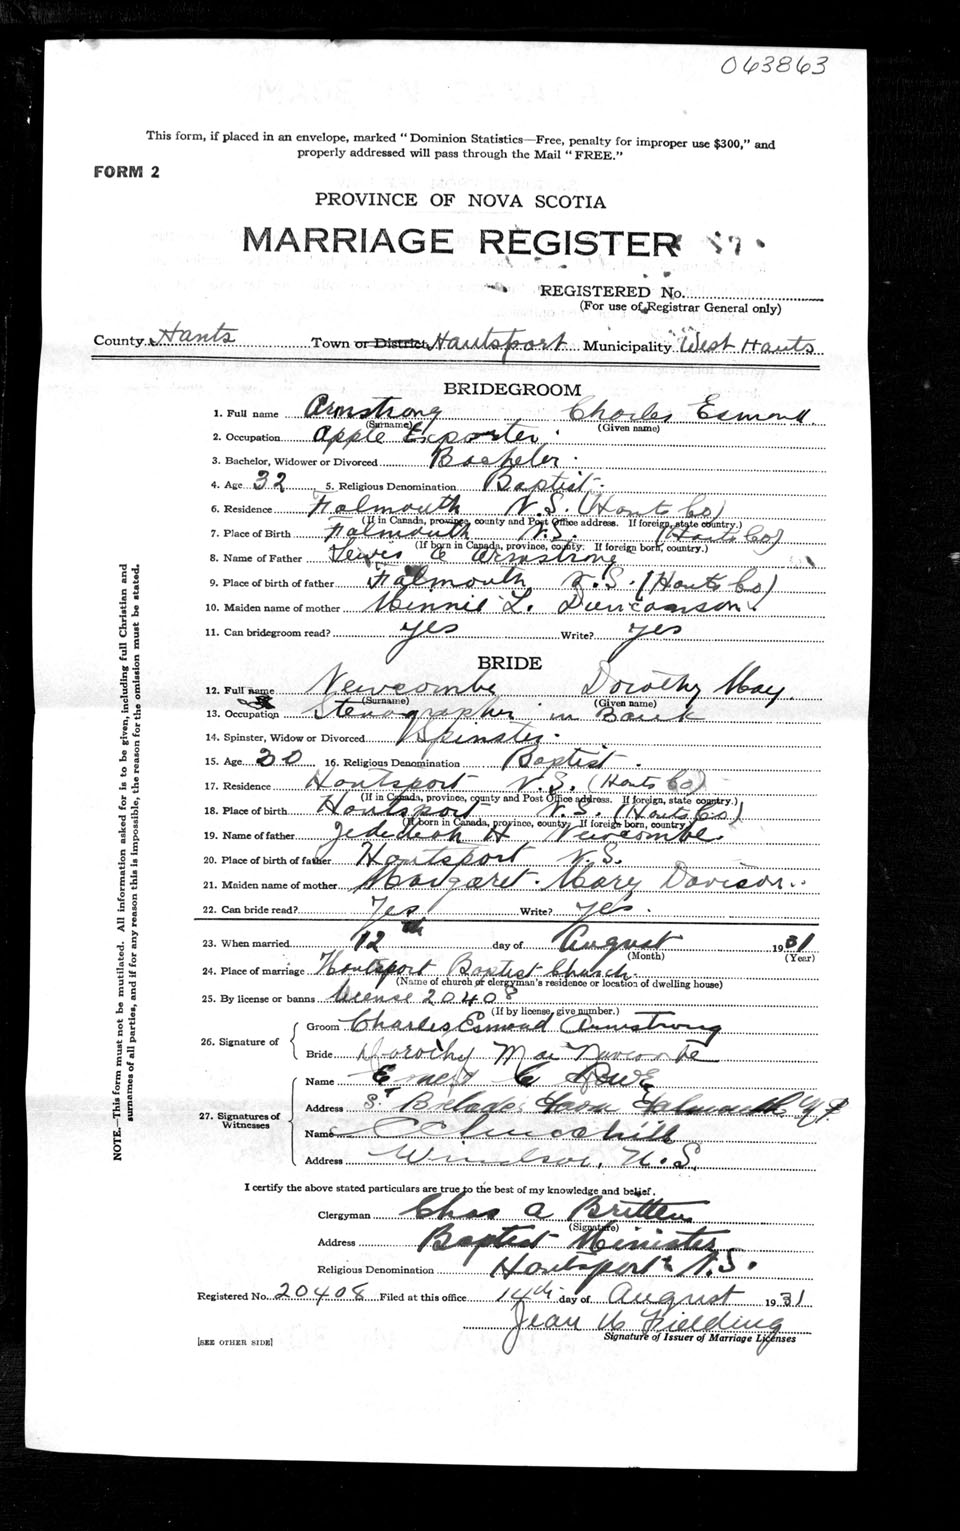 063863
This form, if placed in an envelope, marked "Dominion Statistics—Free, penalty for improper use $300," and
properly addressed will pass through the Mail "FREE."
FORM 2
PROVINCE OF NOVA SCOTIA
MARRIAGE REGISTER
REGISTERED No.
(For use of Registrar General only)
County Hants Town or District Hantsport Municipality West Hants
BRIDEGROOM
1. Full name Armstrong Charles Esmond
(Surname) (Given name)
2. Occupation Apple Exporter
3. Bachelor, Widower or Divorced Bachelor
4. Age 32 5. Religious Denomination Baptist
6. Residence Falmouth N.S. (Hants Co)
(If in Canada, province, county and Post Office address. If foreign, state country.)
7. Place of Birth Falmouth N.S. (Hants Co)
(If born in Canada, province, county. If foreign born, country.)
8. Name of Father Lewis C Armstrong
9. Place of birth of father Falmouth N.S. (Hants Co)
10. Maiden name of mother Minnie L. Duncanson
11. Can bridegroom read? yes Write? yes
BRIDE
12. Full name Newcombe Dorothy May
(Surname) (Given name)
13. Occupation Stenographer in Bank
14. Spinster, Widow or Divorced Spinster
15. Age 30 16. Religious Denomination Baptist
17. Residence Hantsport N.S. (Hants Co)
(If in Canada, province, county and Post Office address. If foreign, state country.)
18. Place of birth Hantsport N.S. (Hants Co)
(If born in Canada, province, county. If foreign born, country)
19. Name of father Jedediah H Newcombe
20. Place of birth of father Hantsport N.S.
21. Maiden name of mother Margaret Mary Davison
22. Can bride read? Yes Write? yes.
23. When married 12th day of August 1931
(Month) (Year)
24. Place of marriage Hantsport Baptist Church
(Name of church or clergyman's residence or location of dwelling house)
25. By license or banns license 20408
(If by license, give number.)
26. Signature of Groom Charles Esmond Armstrong
Bride Dorothy Mae Newcombe
27. Signatures of Witnesses Name Ernest C Rowe
Address St Falmouth
Name Churchill
Address Windsor, N.S.
I certify the above stated particulars are true to the best of my knowledge and belief.
Clergyman Chas A Britten
(Signature)
Address Baptist Minister
Religious Denomination Hantsport N.S.
Registered No. 20408 Filed at this office 14th day of August 1931
Jean Fielding
Signature of Issuer of Marriage Licenses
[SEE OTHER SIDE]
NOTE.—This form must not be mutilated. All information asked for is to be given, including full Christian and
surnames of all parties, and if for any reason this is impossible, the reason for the omission must be stated.